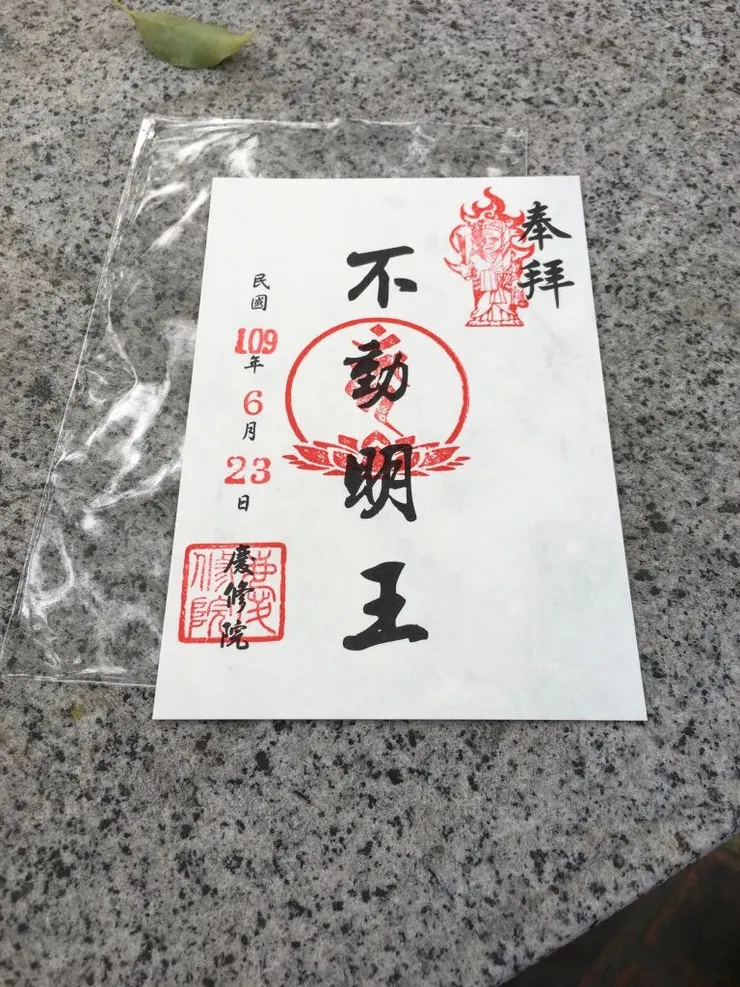 奉拜
不動明王
民國109年6月23日
慶修院
慶修院